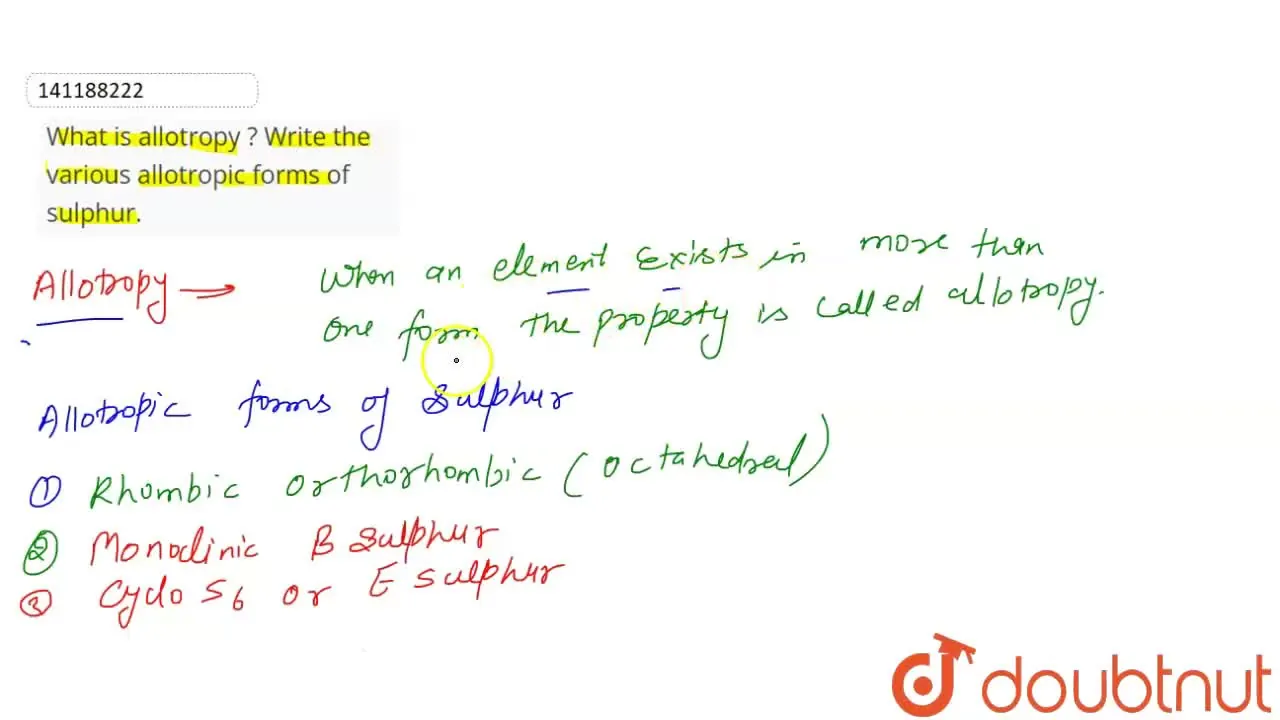 141188222
What is allotropy ? Write the
various allotropic forms of
sulphur.
Allotropy → When an element exists in more than
one form the property is called allotropy.
Allotropic forms of sulphur
① Rhombic orthorhombic (octahedral)
② Monoclinic B sulphur
③ Cyclo S6 or E sulphur
doubtnut